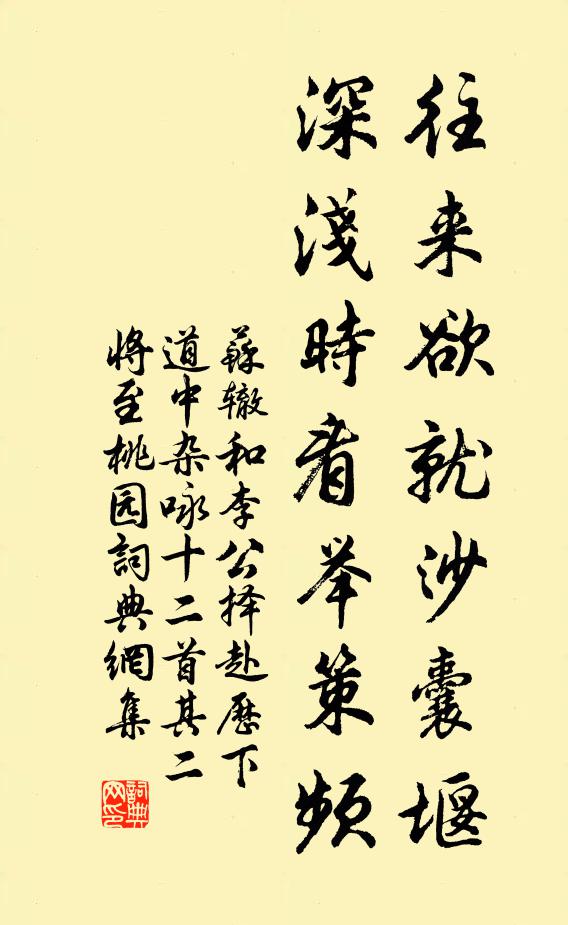 往来欲就沙囊堰
深淺時看举策頻
蘇辙和李公择赴歷下
道中杂咏十二首其二
将至桃园詞典網集
詞典网印